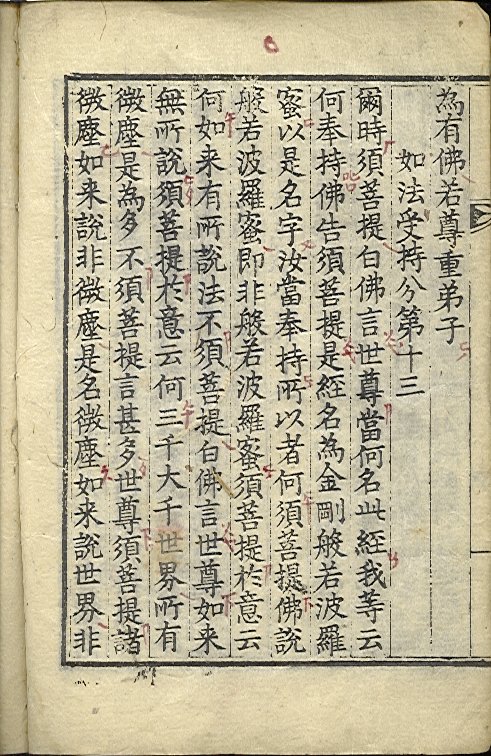 為有佛若尊重弟子
如法受持分第十三
爾時須菩提白佛言世尊當何名此經我等云
何奉持佛告須菩提是經名為金剛般若波羅
蜜以是名字汝當奉持所以者何須菩提佛說
般若波羅蜜即非般若波羅蜜須菩提於意云
何如来有所說法不須菩提白佛言世尊如来
無所說須菩提於意云何三千大千世界所有
微塵是為多不須菩提言甚多世尊須菩提諸
微塵如来說非微塵是名微塵如来說世界非